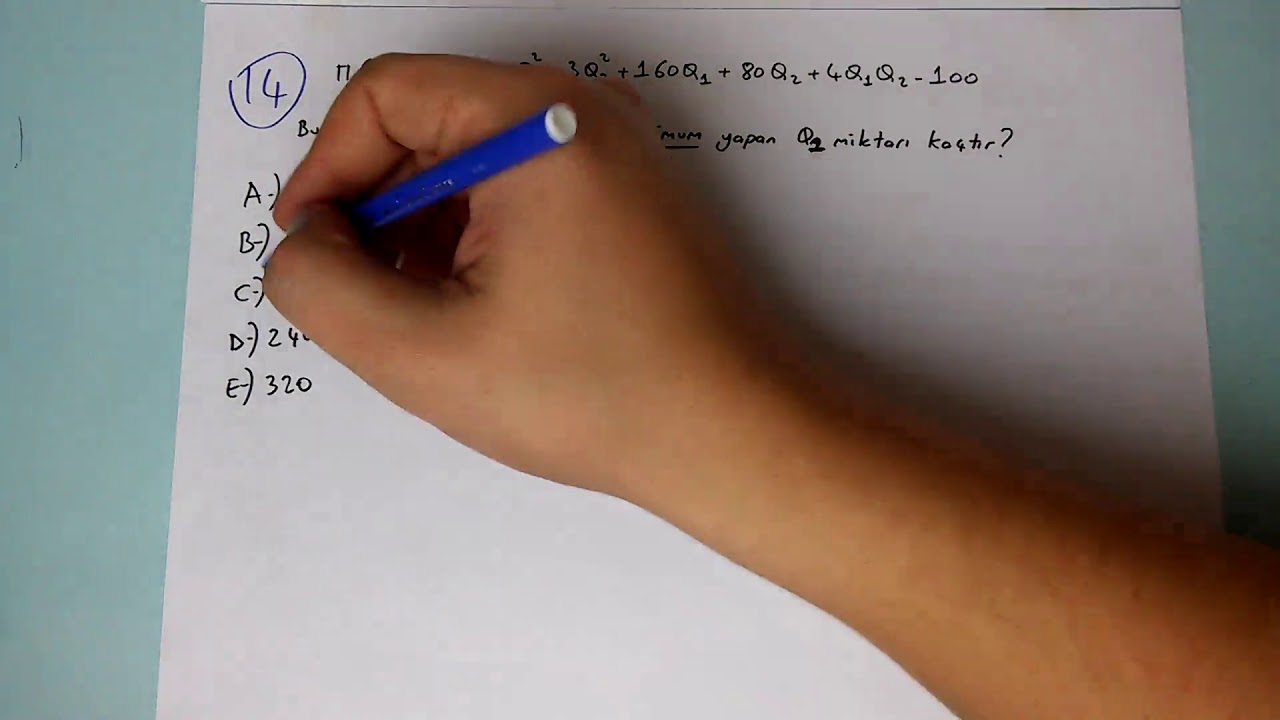 14
3Q₂² + 160Q₁ + 80Q₂ + 4Q₁Q₂ - 100
yapan Q₂ miktarı kaçtır?
A-)
B-)
C-)
D-) 24
E-) 320